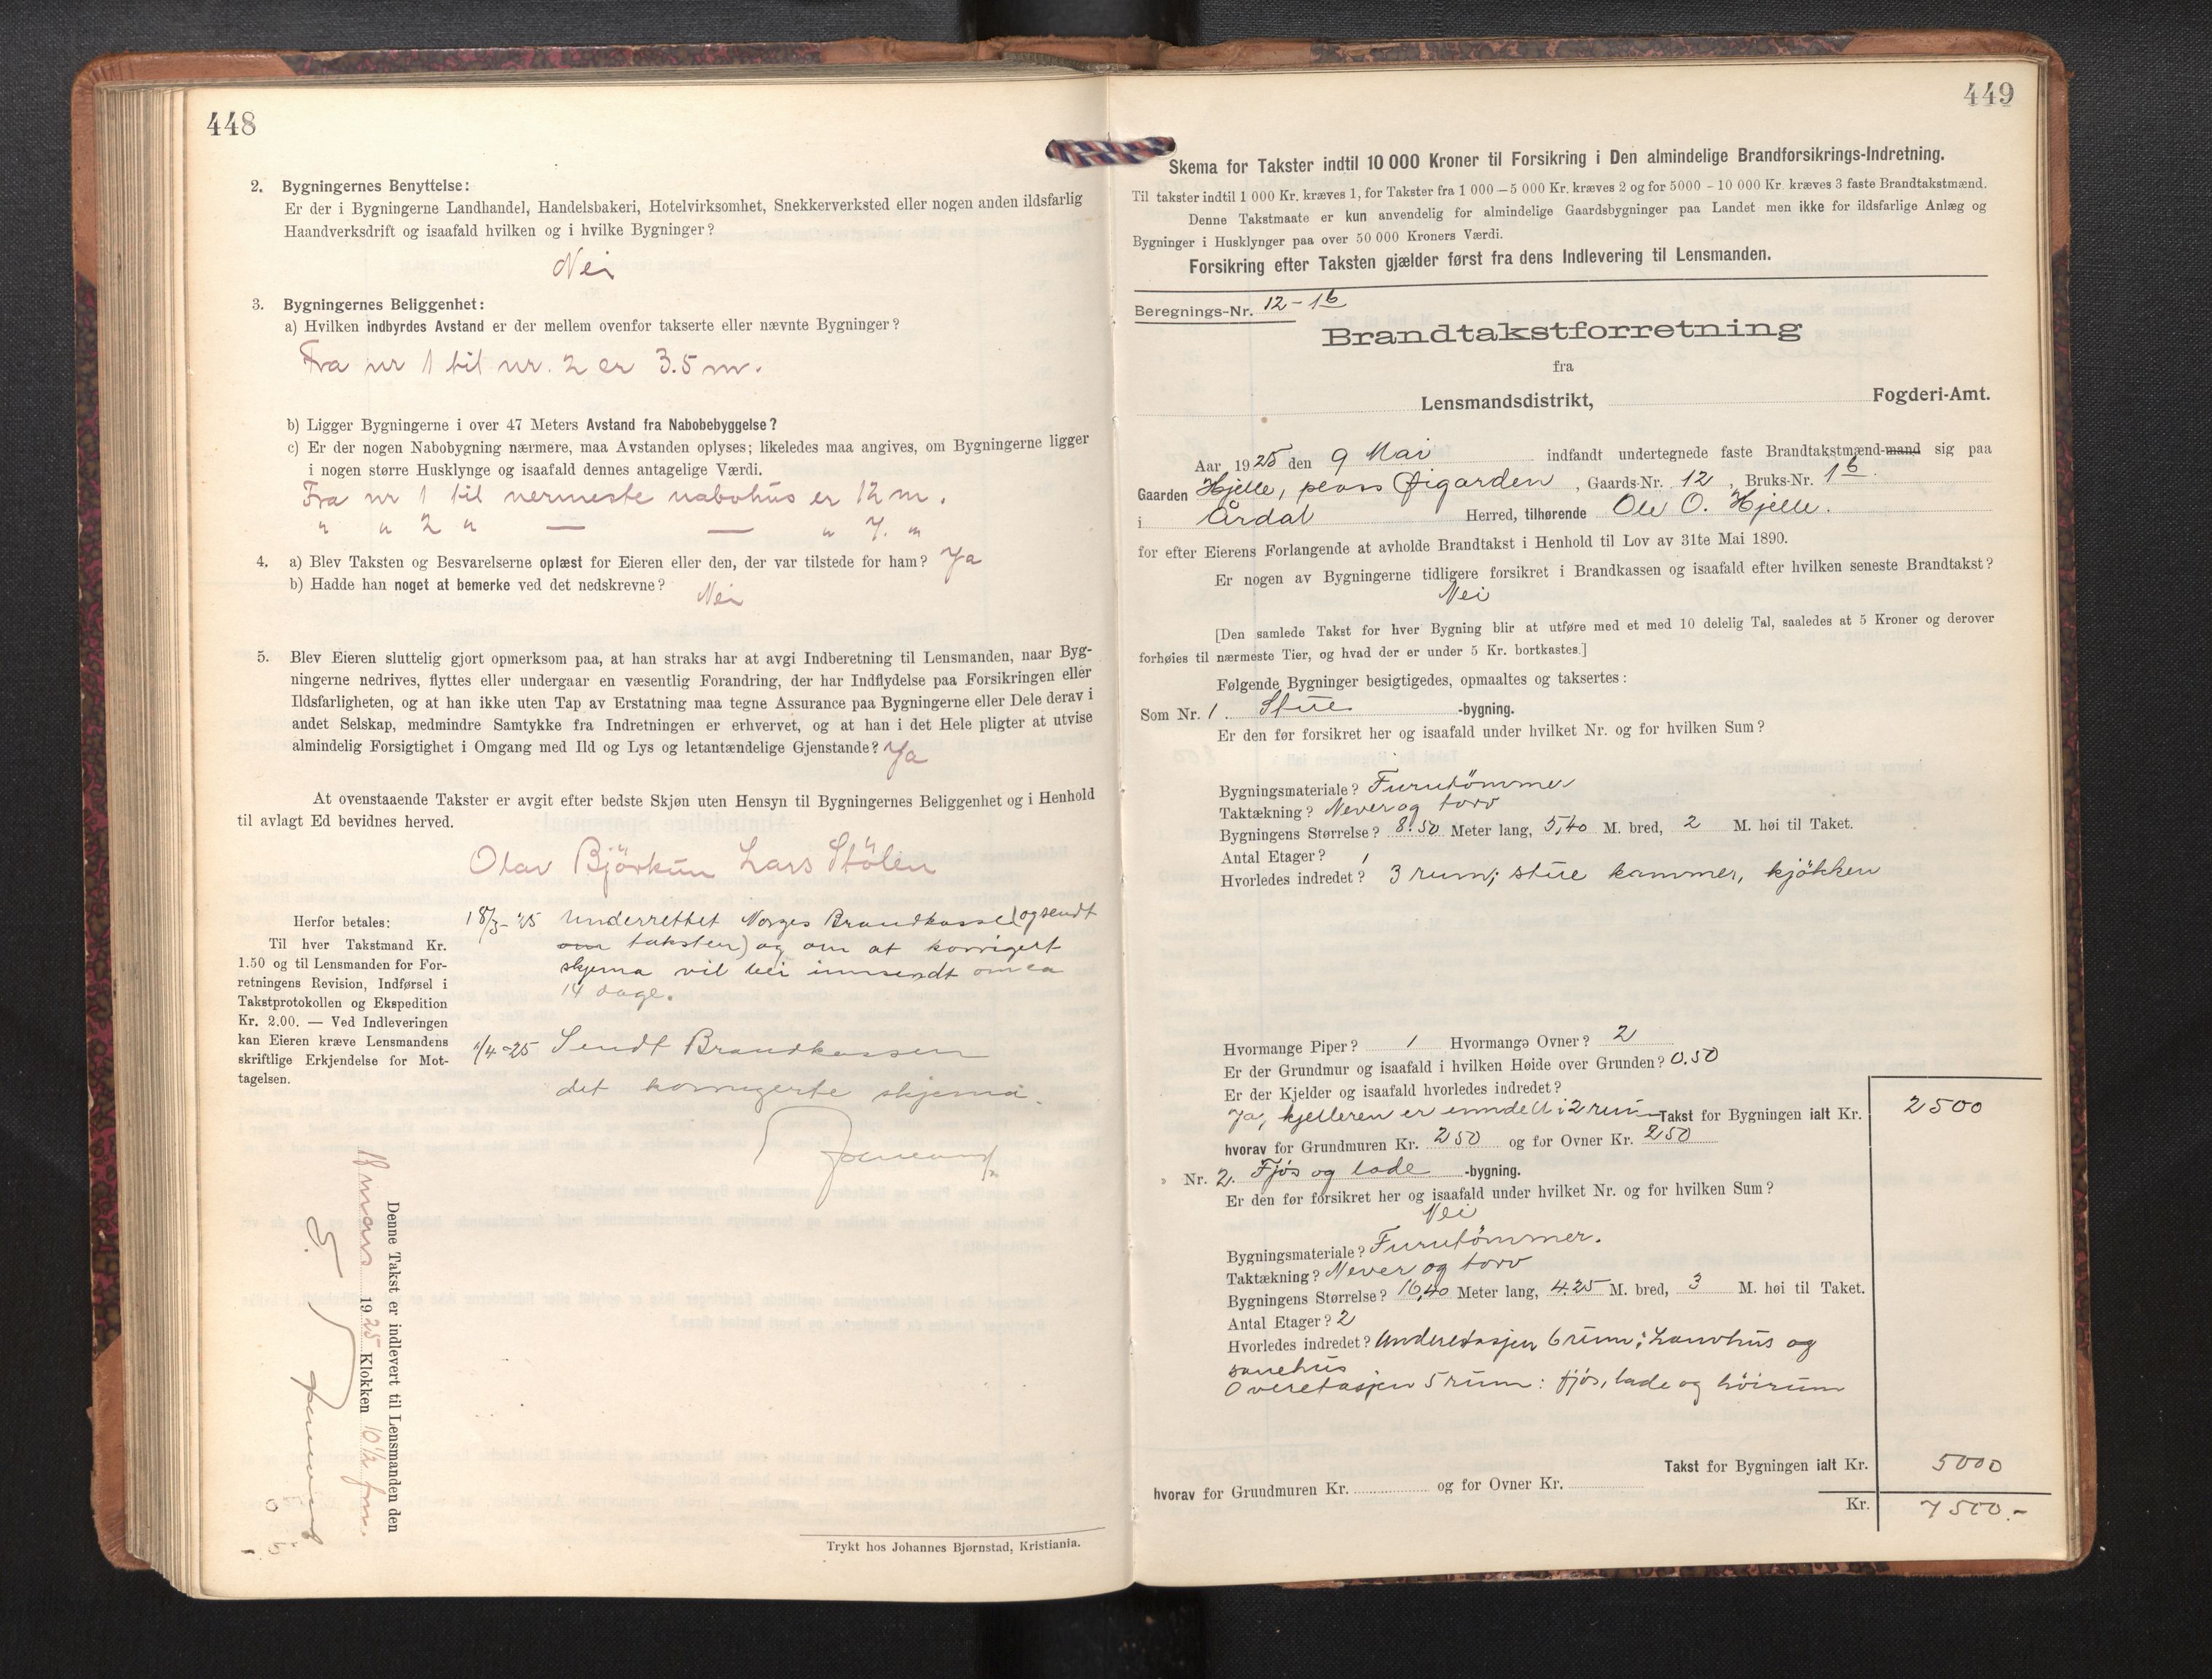 448
2. Bygningernes Benyttelse:
Er der i Bygningerne Landhandel, Handelsbakeri, Hotelvirksomhet, Snekkerverksted eller nogen anden ildsfarlig
Haandverksdrift og isaafald hvilken og i hvilke Bygninger?
Nei
3. Bygningernes Beliggenhet:
a) Hvilken indbyrdes Avstand er der mellem ovenfor takserte eller nævnte Bygninger?
Fra nr 1 til nr. 2 er 3.5 m.
b) Ligger Bygningerne i over 47 Meters Avstand fra Nabobebyggelse?
c) Er der nogen Nabobygning nærmere, maa Avstanden oplyses; likeledes maa angives, om Bygningerne ligger
i nogen større Husklynge og isaafald dennes antagelige Værdi.
Fra nr 1 til nermeste nabohus er 12 m.
" " 2 " — — " 7. "
4. a) Blev Taksten og Besvarelserne oplæst for Eieren eller den, der var tilstede for ham? Ja
b) Hadde han noget at bemerke ved det nedskrevne? Nei
5. Blev Eieren sluttelig gjort opmerksom paa, at han straks har at avgi Indberetning til Lensmanden, naar Byg-
ningerne nedrives, flyttes eller undergaar en væsentlig Forandring, der har Indflydelse paa Forsikringen eller
Ildsfarligheten, og at han ikke uten Tap av Erstatning maa tegne Assurance paa Bygningerne eller Dele derav i
andet Selskap, medmindre Samtykke fra Indretningen er erhvervet, og at han i det Hele pligter at utvise
almindelig Forsigtighet i Omgang med Ild og Lys og letantændelige Gjenstande? Ja
At ovenstaaende Takster er avgit efter bedste Skjøn uten Hensyn til Bygningernes Beliggenhet og i Henhold
til avlagt Ed bevidnes herved.
Olav Björkum Lars Stölen
Herfor betales:
Til hver Takstmand Kr.
1.50 og til Lensmanden for For-
retningens Revision, Indførsel i
Takstprotokollen og Ekspedition
Kr. 2.00. — Ved Indleveringen
kan Eieren kræve Lensmandens
skriftlige Erkjendelse for Mot-
tagelsen.
18/3-25 Underrettet Norges Brandkasse (og sendt
om taksten) og om at korrigert
skjema vil bli innsendt om ca
14 dage.
/4-25 Sendt Brandkassen
det korrigerte skjema.
Denne Takst er indlevert til Lensmanden den
18 mars 1925 Klokken 10½ fm.
Trykt hos Johannes Bjørnstad, Kristiania.
449
Skema for Takster indtil 10 000 Kroner til Forsikring i Den almindelige Brandforsikrings-Indretning.
Til takster indtil 1 000 Kr. kræves 1, for Takster fra 1 000 – 5 000 Kr. kræves 2 og for 5000 - 10 000 Kr. kræves 3 faste Brandtakstmænd.
Denne Takstmaate er kun anvendelig for almindelige Gaardsbygninger paa Landet men ikke for ildsfarlige Anlæg og
Bygninger i Husklynger paa over 50 000 Kroners Værdi.
Forsikring efter Taksten gjælder først fra dens Indlevering til Lensmanden.
Beregnings-Nr. 12 – 1b
Brandtakstforretning
fra
Lensmandsdistrikt, Fogderi-Amt.
Aar 1925 den 9 Mai indfandt undertegnede faste Brandtakstmænd-mand sig paa
Gaarden Hjelle, plass Øigarden, Gaards-Nr. 12, Bruks-Nr. 1b.
i Årdal Herred, tilhørende Ole O. Hjelle.
for efter Eierens Forlangende at avholde Brandtakst i Henhold til Lov av 31te Mai 1890.
Er nogen av Bygningerne tidligere forsikret i Brandkassen og isaafald efter hvilken seneste Brandtakst?
Nei
[Den samlede Takst for hver Bygning blir at utføre med et med 10 delelig Tal, saaledes at 5 Kroner og derover
forhøies til nærmeste Tier, og hvad der er under 5 Kr. bortkastes.]
Følgende Bygninger besigtigedes, opmaaltes og taksertes:
Som Nr. 1. Stue -bygning.
Er den før forsikret her og isaafald under hvilket Nr. og for hvilken Sum?
Bygningsmateriale? Furutömmer
Taktækning? Never og torv
Bygningens Størrelse? 8.50 Meter lang, 5,40 M. bred, 2 M. høi til Taket.
Antal Etager? 1
Hvorledes indredet? 3 rum; stue kammer, kjökken
Hvormange Piper? 1 Hvormange Ovner? 2
Er der Grundmur og isaafald i hvilken Høide over Grunden? 0.50
Er der Kjelder og isaafald hvorledes indredet?
Ja, kjelleren er inndelt i 2 rum Takst for Bygningen ialt Kr. 2500
hvorav for Grundmuren Kr. 250 og for Ovner Kr. 250
Nr. 2. Fjös og lade -bygning.
Er den før forsikret her og isaafald under hvilket Nr. og for hvilken Sum?
Nei
Bygningsmateriale? Furutömmer.
Taktækning? Never og torv
Bygningens Størrelse? 16,40 Meter lang, 4.25 M. bred, 3 M. høi til Taket.
Antal Etager? 2
Hvorledes indredet? Underetasjen 6 rum: Lauvhus og
sauehus
Overetasjen 5 rum: fjös, lade og höirum
Takst for Bygningen ialt Kr. 5000
hvorav for Grundmuren Kr. og for Ovner Kr.
Kr. 7500.-